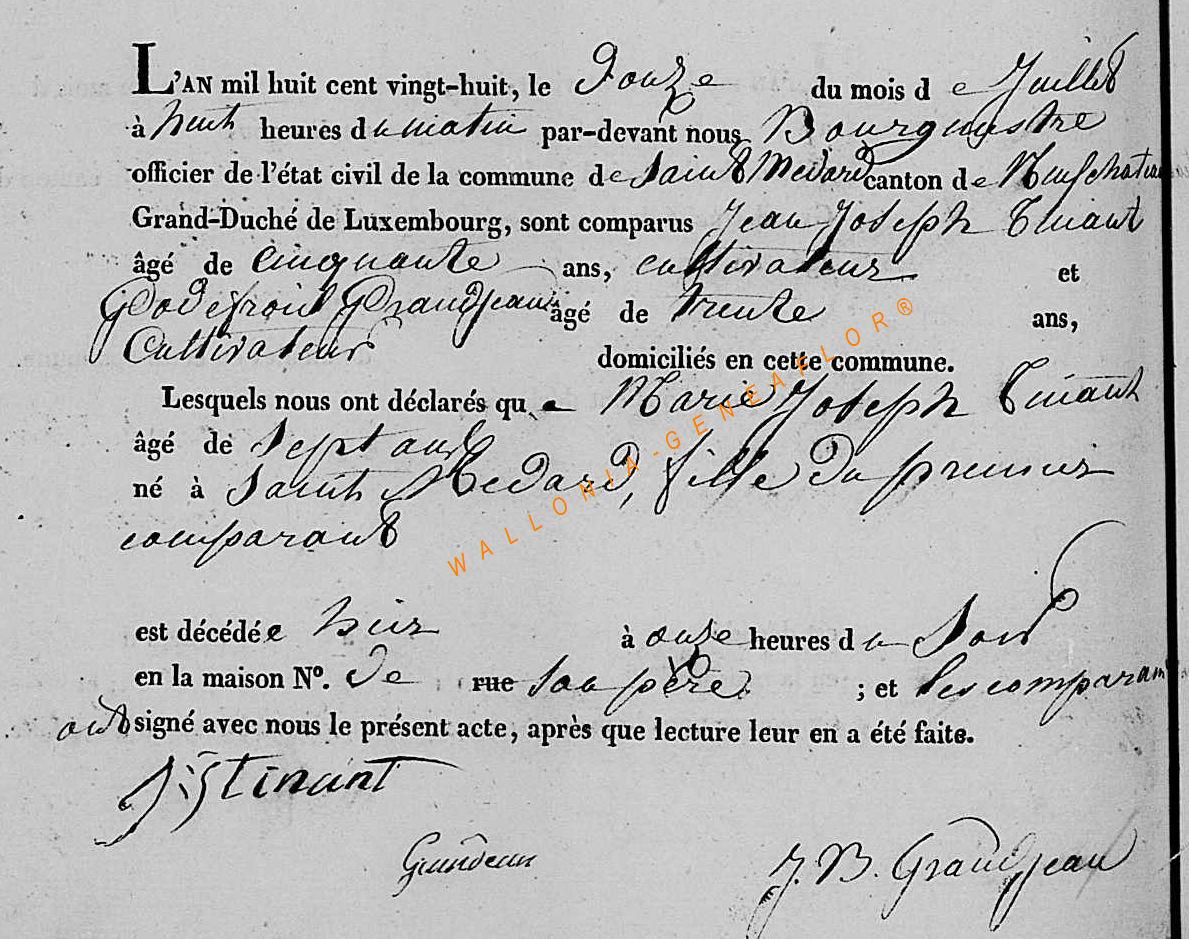 L'AN mil huit cent vingt-huit, le Douze du mois de Juillet
à huit heures du matin par-devant nous Bourgmestre
officier de l'état civil de la commune de Saint Medard canton de Neufchateau
Grand-Duché de Luxembourg, sont comparus Jean Joseph Tinant
âgé de Cinquante ans, cultivateur et
Godefroid Grandjean âgé de trente ans,
Cultivateur domiciliés en cette commune.
Lesquels nous ont déclarés que Marie Joseph Tinant
âgé de Sept ans
né à Saint Medard, fille du premier
comparant
est décédée hier à onze heures du Soir
en la maison N°. de rue son père ; et les comparants
ont signé avec nous le présent acte, après que lecture leur en a été faite.
J:J tinant
Grandjean
J. B. Grandjean
WALLONIA-GENEAFLOR®